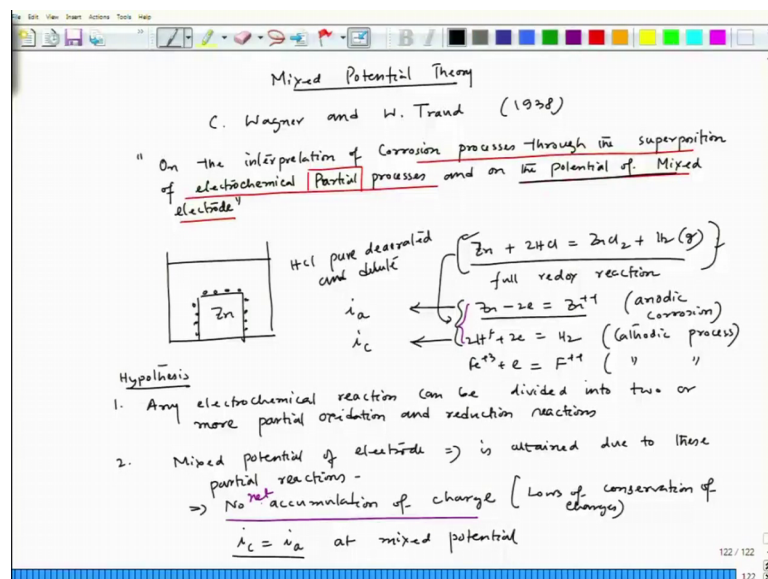 File Edit View Insert Actions Tools Help
Mixed Potential Theory
C. Wagner and W. Traud (1938)
" On the interpretation of Corrosion processes through the superposition
of electrochemical Partial processes and on the potential of Mixed
electrode"
HCl pure deaerated
and dilute
Zn
Zn + 2HCl = ZnCl2 + H2 (g)
full redox reaction
ia
Zn - 2e = Zn++ (anodic
corrosion)
ic
2H+ + 2e = H2 (Cathodic process)
Fe+3 + e = F++ ( " " )
Hypothesis
1. Any electrochemical reaction can be divided into two or
more partial oxidation and reduction reactions
2. Mixed potential of electrode => is attained due to these
partial reactions -
=> No net accumulation of charge (Laws of conservation of
charges)
ic = ia at mixed potential
122 / 122
122